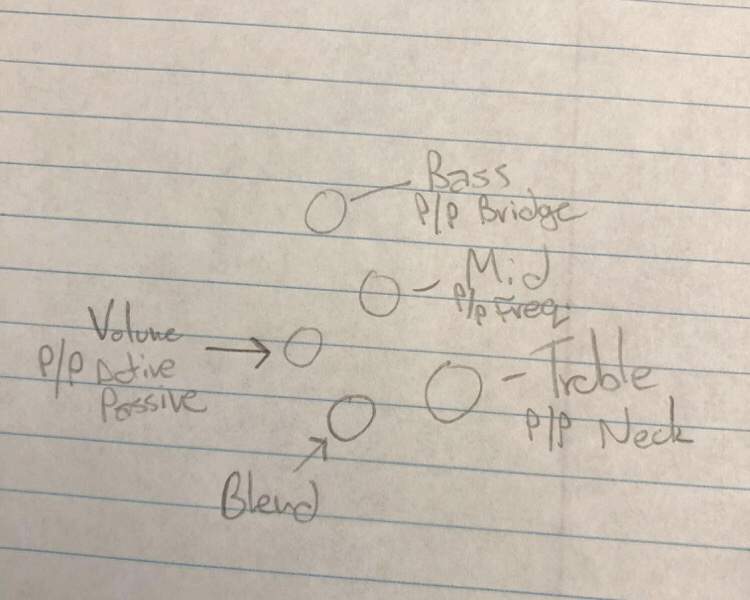 Bass
P/P Bridge
Mid
P/P Freq
Volume
P/P Active
Passive
Treble
P/P Neck
Blend